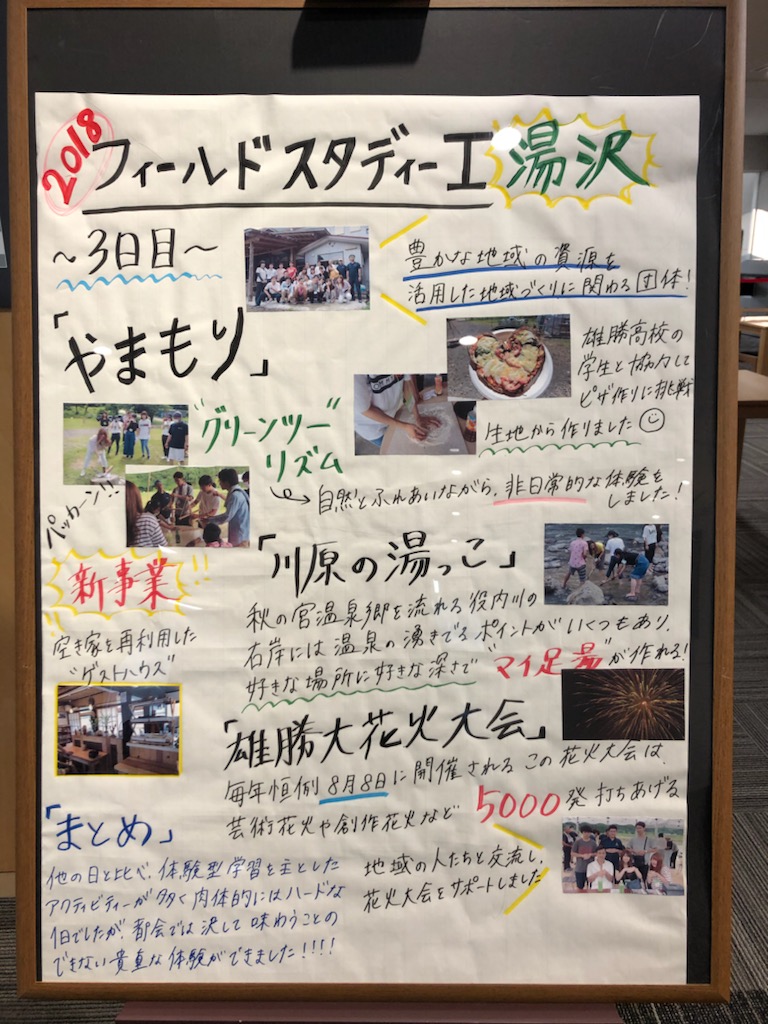 2018
フィールドスタディーⅠ 湯沢
～3日目～
豊かな地域の資源を
活用した地域づくりに関わる団体!
「やまもり」
雄勝高校の
学生と協力して
ピザ作りに挑戦
生地から作りました
"グリーンツー"
リズム
自然とふれあいながら、非日常的な体験を
しました!
パッカーン!!
新事業!!
空き家を再利用した
"ゲストハウス"
「川原の湯っこ」
秋の宮温泉郷を流れる役内川の
右岸には温泉の湧きでるポイントがいくつもあり、
好きな場所に好きな深さで"マイ足湯"が作れる!
「雄勝大花火大会」
毎年恒例8月8日に開催されるこの花火大会は、
芸術花火や創作花火など5000発打ちあげる
地域の人たちと交流し、
花火大会をサポートしました
「まとめ」
他の日と比べ、体験型学習を主とした
アクティビティーが多く肉体的にはハードな
1日でしたが、都会では決して味わうことの
できない貴重な体験ができました!!!!